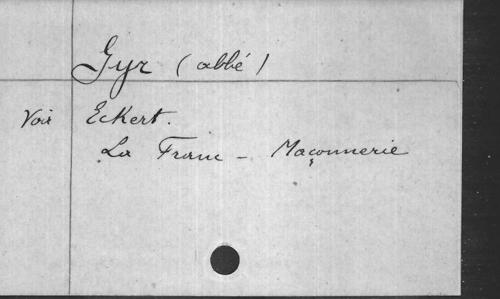 Gyr (abbé)
Voir Eckert.
La Franc - Maçonnerie